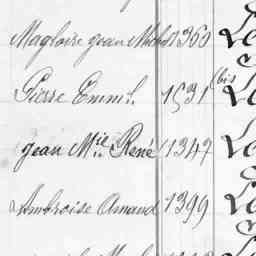 Magloire Jean Michel 1360 Le
Pierre Emml. 1531 (bis Le
Jean Mie. René 1347 Le
Ambroise Amand 1399 Le